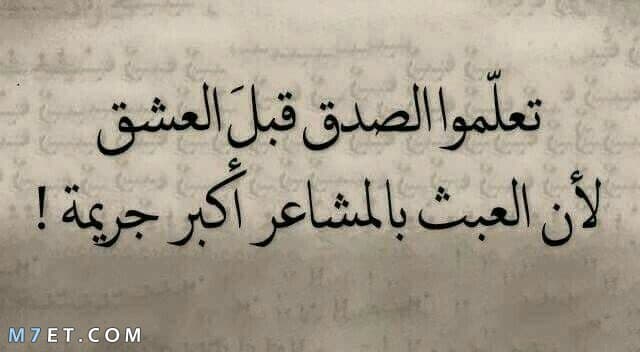 تعلّموا الصدق قبلَ العشق
لأن العبث بالمشاعر أكبر جريمة !
M7ET.COM